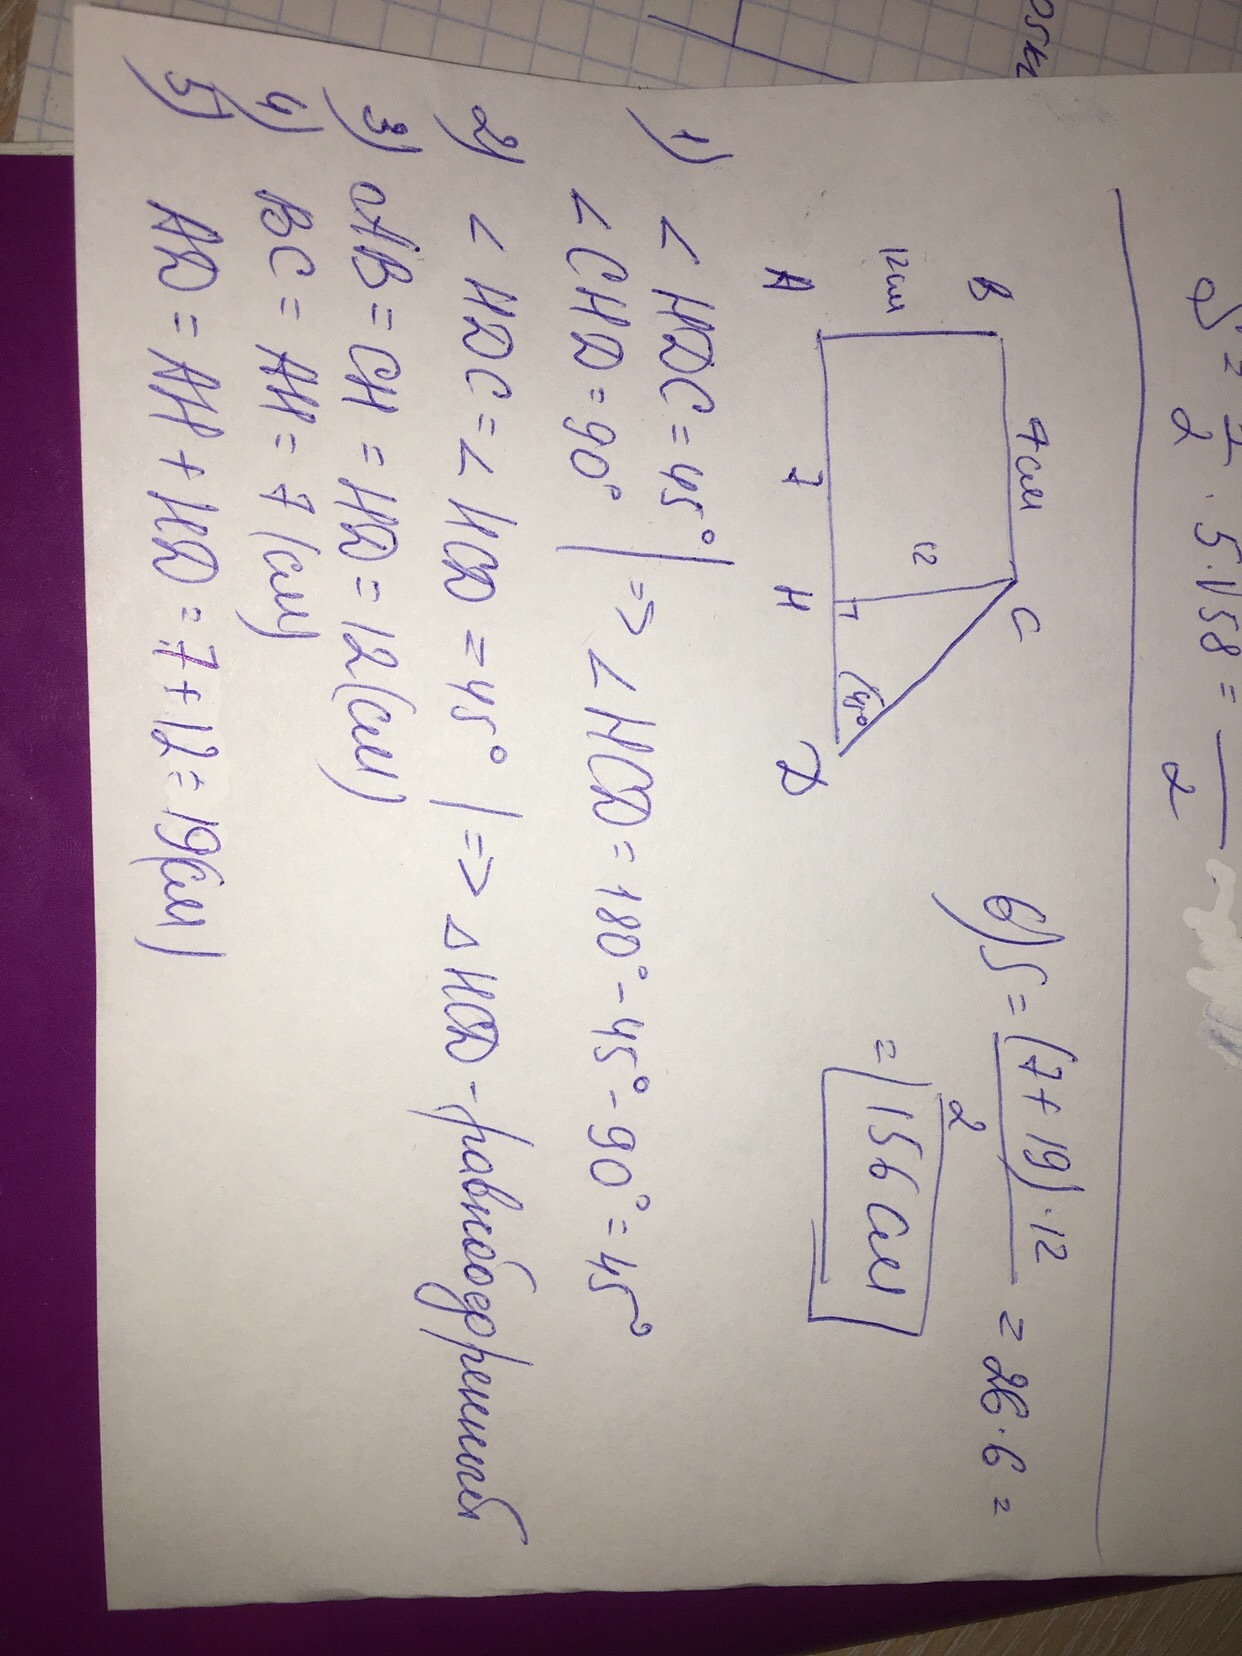 S = 1/2 · 5 · √58 = /2
B 7 см C
12 см 12
A 7 H 45° D
6) S = (7 + 19) · 12 / 2 = 26 · 6 =
= 156 см
1) ∠ HDC = 45° | => ∠ HCD = 180° - 45° - 90° = 45°
∠ CHD = 90° |
2) ∠ HDC = ∠ HCD = 45° | => △ HCD - равнобедренный
3) AB = CH = HD = 12 (см)
4) BC = AH = 7 (см)
5) AD = AH + HD = 7 + 12 = 19 (см)